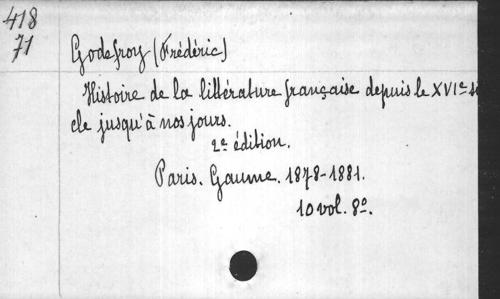 418
71
Godefroy (Frédéric)
Histoire de la littérature française depuis le XVIe siè
cle jusqu'à nos jours.
2e édition.
Paris. Gaume. 1878-1881.
10 vol. 8o.